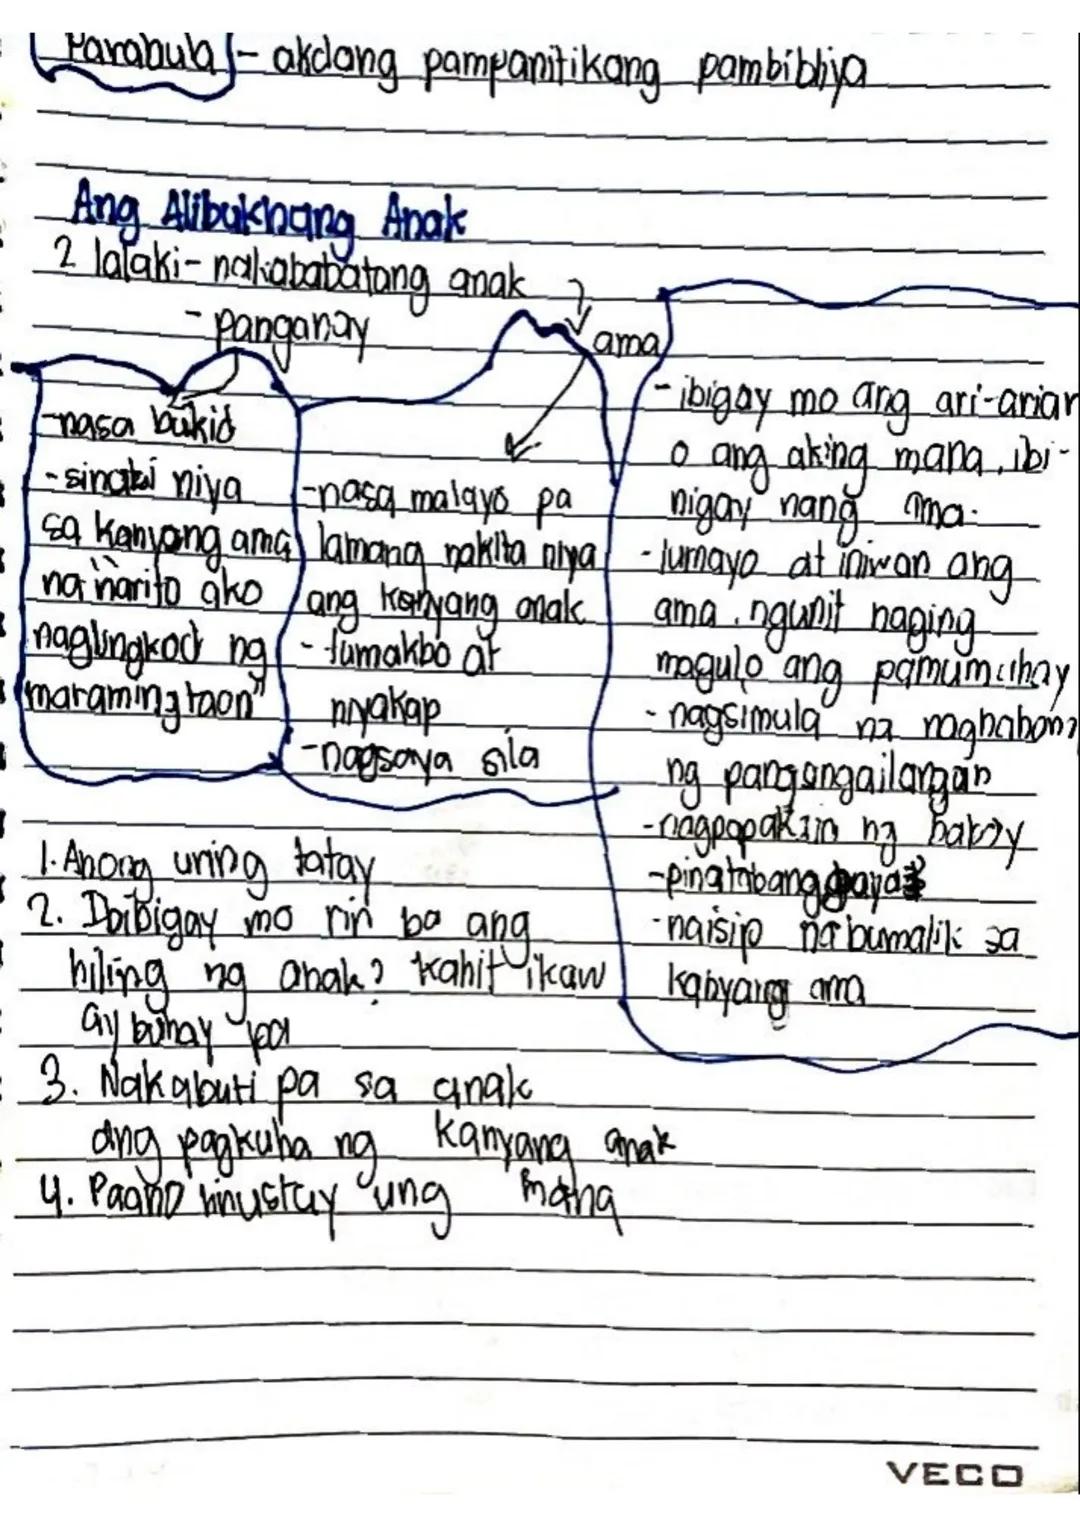 Parabula - akdang pampanitikang pambibliya
Ang Alibukhang Anak
2 lalaki - nakababatang anak
- panganay
ama
-nasa bukid
- sinabi niya
sa kanyang ama
na "narito ako
naglingkod ng
maraming taon"
-nasa malayo pa
lamang nakita niya
ang kanyang anak
- tumakbo at
niyakap
-nagsaya sila
- ibigay mo ang ari-arian
o ang aking mana, ibi-
nigay nang ama.
- lumayo at iniwan ang
ama, ngunit naging
magulo ang pamumuhay
- nagsimula na naghahama
ng pangangailangan
-nagpapakain ng baboy
-pinatabang
-naisip na bumalik sa
kanyang ama
1. Anong uring tatay
2. Ibibigay mo rin ba ang
hiling ng anak? kahit ikaw
ay buhay pa
3. Nakabuti pa sa anak
ang pagkuha ng kanyang anak
4. Paano hinustay ung mana
VECO